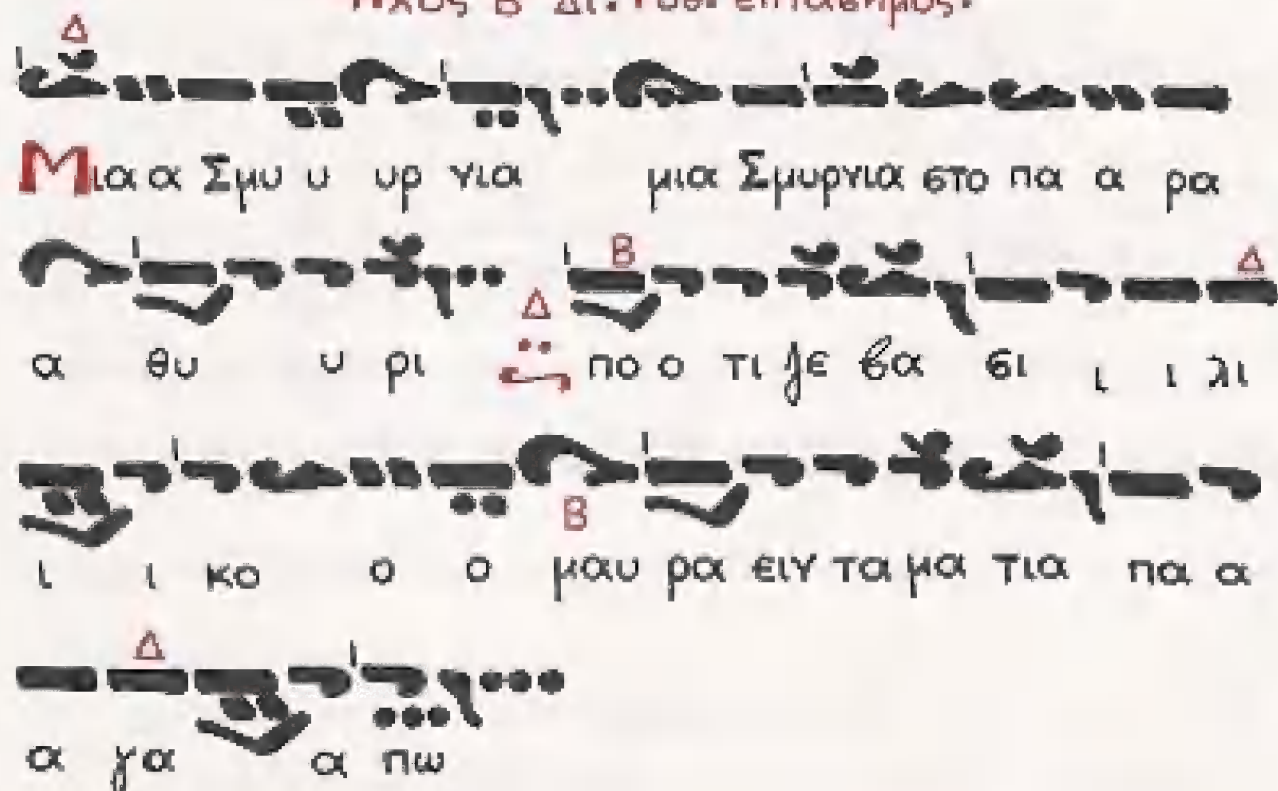 Ἦχος Β Δι. Ρυθ. επτάσημος.
Δ
Μια α Σμυ υ υρ νια μια Σμυρνια στο πα α ρα
Β Δ
α θυ υ ρι Δ πο ο τι ζε βα σι ι ι λι
Β
ι ι κο ο ο μαυ ρα ειν τα μα τια πα α
Δ
α γα α πω